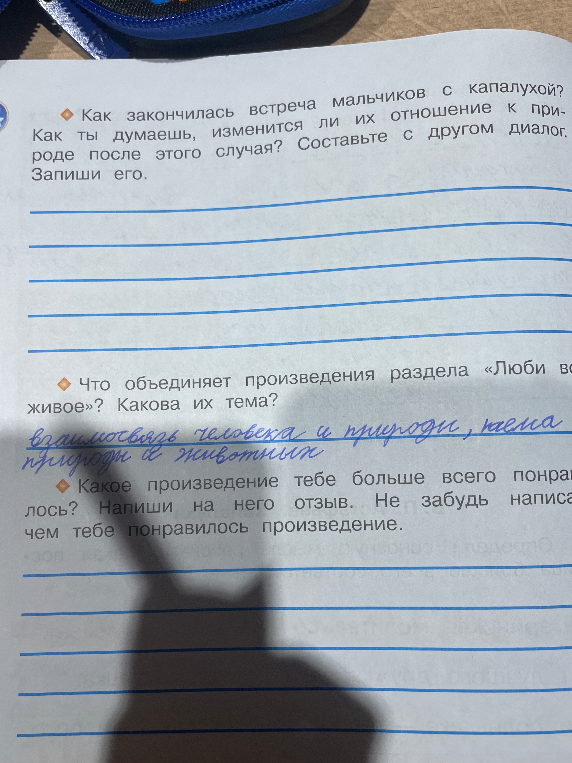 Как закончилась встреча мальчиков с капалухой?
Как ты думаешь, изменится ли их отношение к при-
роде после этого случая? Составьте с другом диалог.
Запиши его.
Что объединяет произведения раздела «Люби вс
живое»? Какова их тема?
взаимосвязь человека и природы, тема
природы и животных
Какое произведение тебе больше всего понра
лось? Напиши на него отзыв. Не забудь написа
чем тебе понравилось произведение.